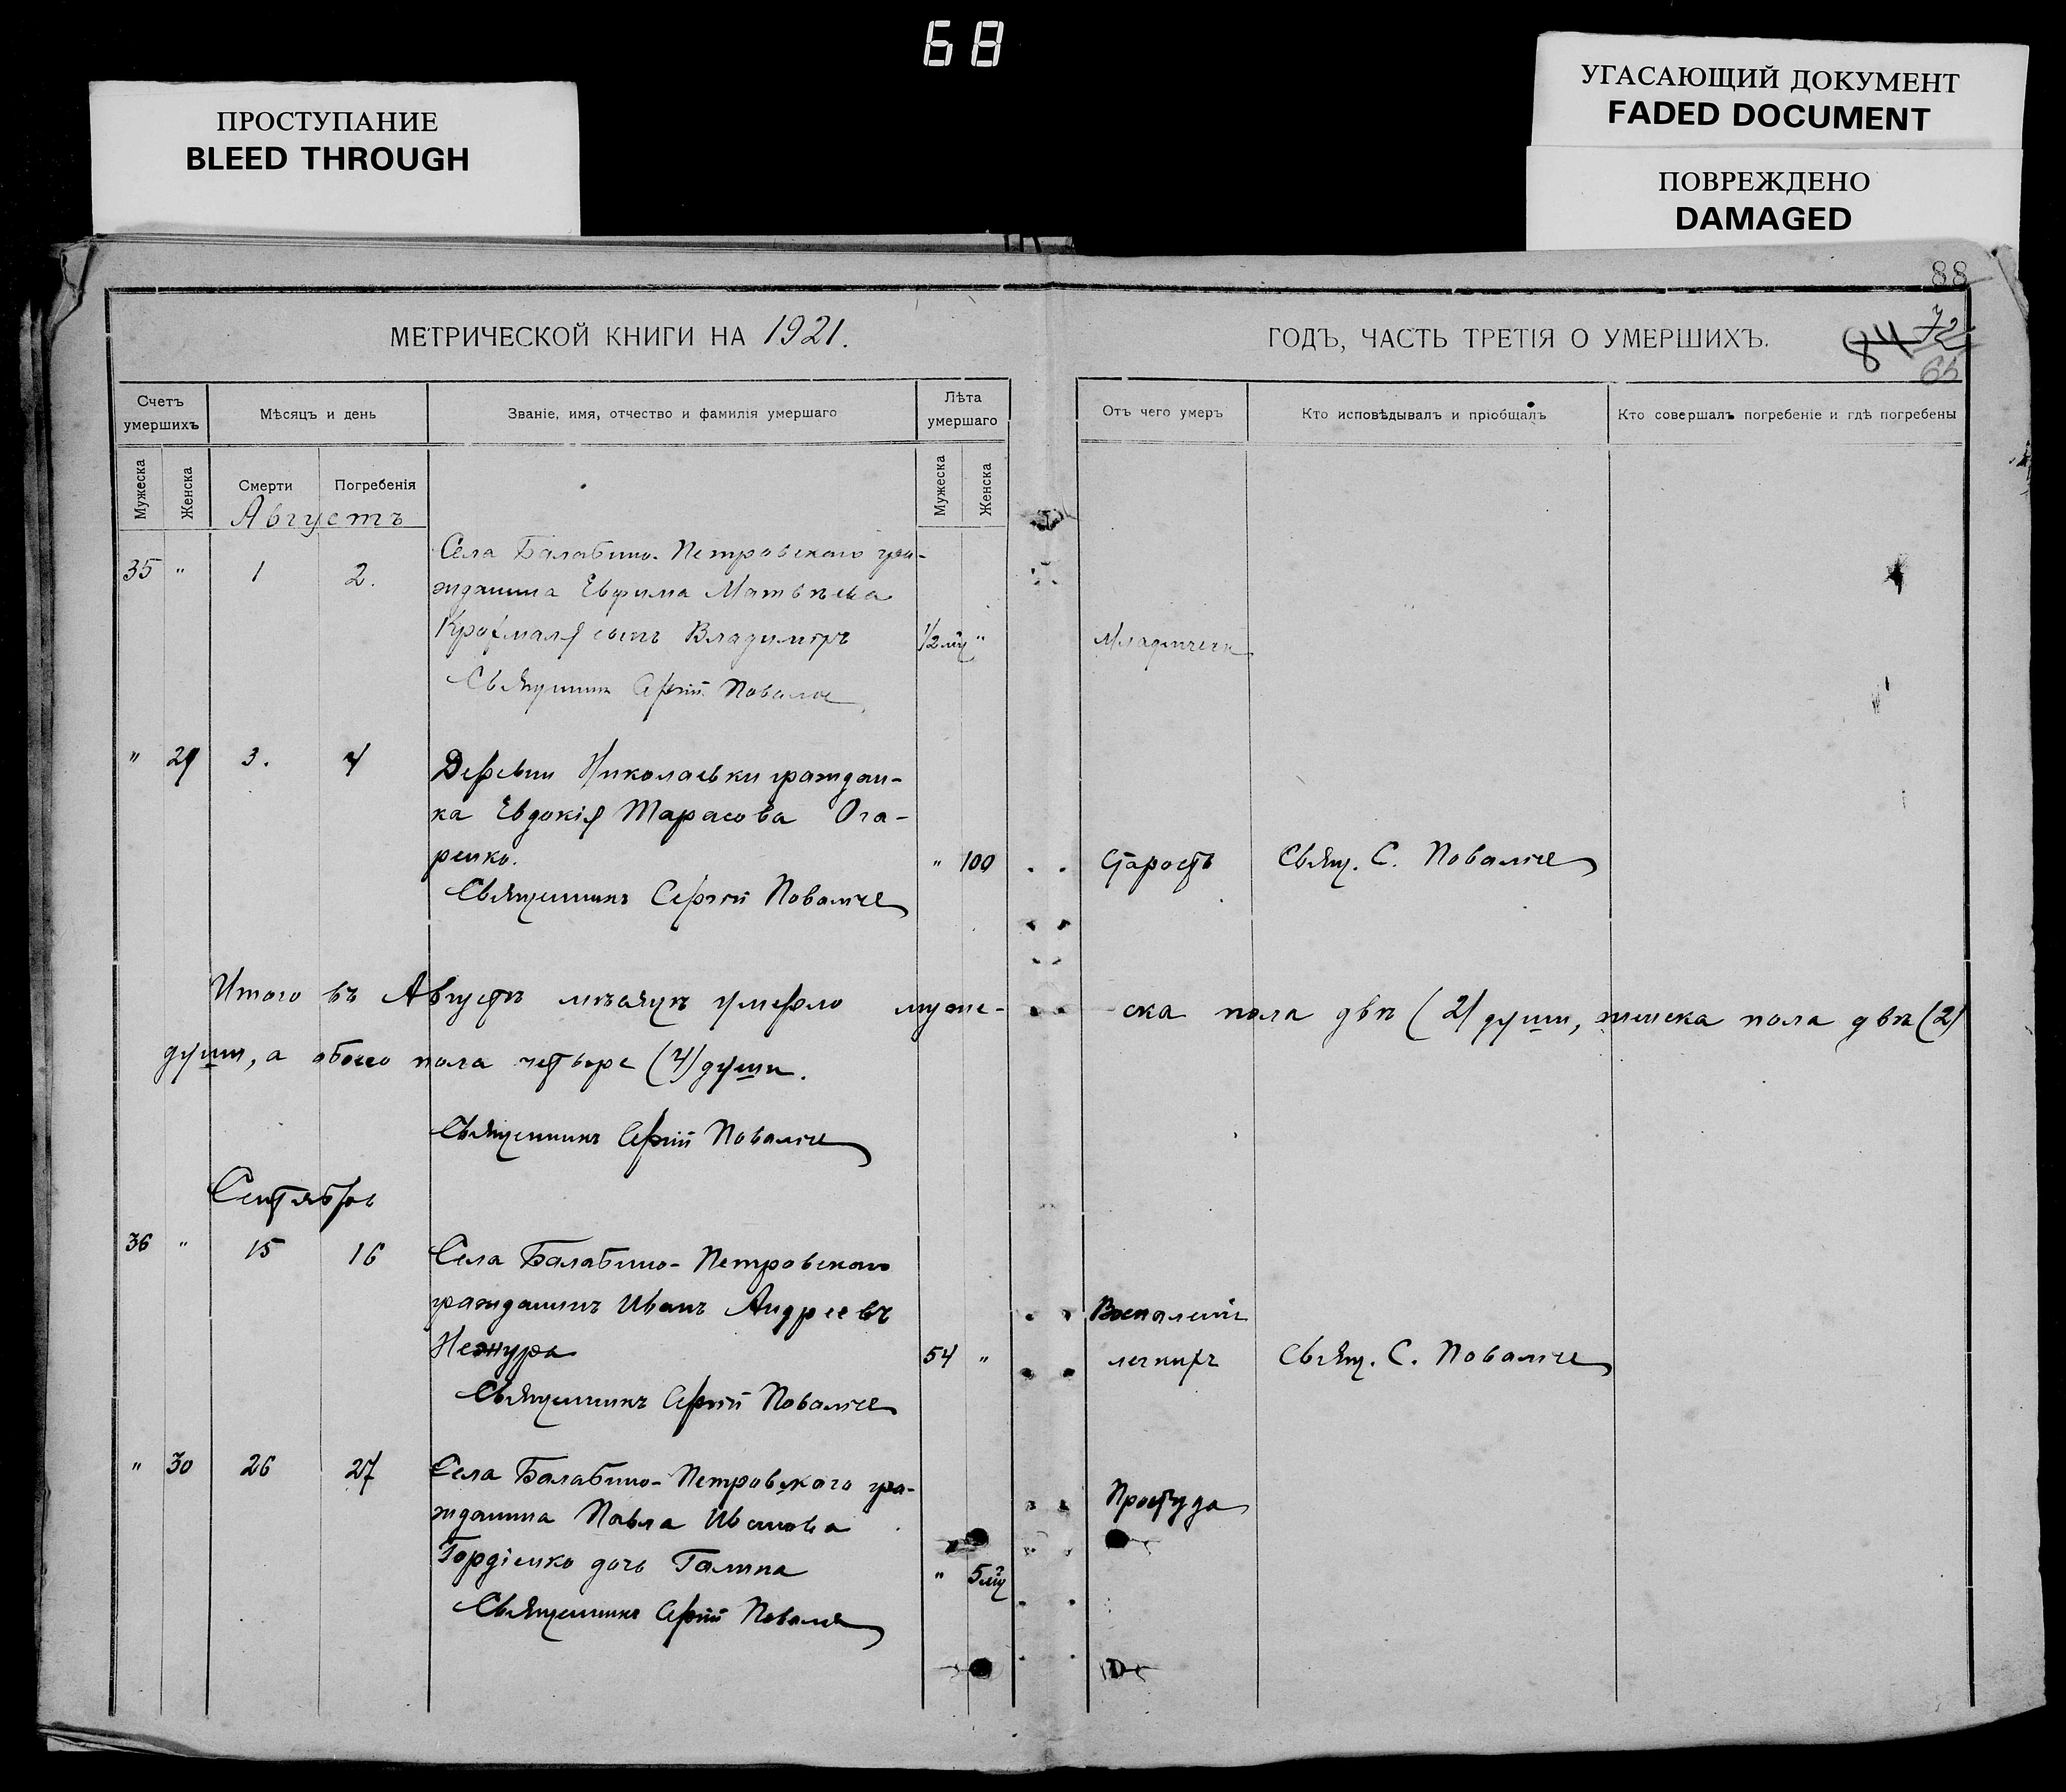 68
ПРОСТУПАНИЕ
BLEED THROUGH
УГАСАЮЩИЙ ДОКУМЕНТ
FADED DOCUMENT
ПОВРЕЖДЕНО
DAMAGED
88
МЕТРИЧЕСКОЙ КНИГИ НА 1921.
ГОДЪ, ЧАСТЬ ТРЕТІЯ О УМЕРШИХЪ.
84 72
Счетъ умершихъ
Мѣсяцъ и день
Званіе, имя, отчество и фамилія умершаго
Лѣта умершаго
Отъ чего умеръ
Кто исповѣдывалъ и пріобщалъ
Кто совершалъ погребеніе и гдѣ погребены
Мужеска
Женска
Смерти
Погребенія
Мужеска
Женска
Августъ
Села Балабино-Петровскаго гра-
35 " 1 2.
жданина Евфима Матвѣева
сынъ Владиміръ 1/2 мц "
Священникъ Сергій Поваличе
" 29 3. 4 Деревни Николаевки граждан-
ка Евдокія Тарасова Ога-
ренко. " 100 Старость Свящ. С. Поваличе
Священникъ Сергій Поваличе
Итого въ Августѣ мѣсяцѣ умерло муже- ска пола двѣ (2) души, женска пола двѣ (2)
души, а обоего пола четверо (4) души.
Священникъ Сергій Поваличе
Сентябрь
36 " 15 16 Села Балабино-Петровскаго
гражданинъ Иванъ Андреевъ Воспаленіе
Нежура 54 " легкихъ Свящ. С. Поваличе
Священникъ Сергій Поваличе
" 30 26 27 Села Балабино-Петровскаго гра-
Простуда
жданина Павла Иванова
Гордіенко дочь Галина " 5 мц
Священникъ Сергій Поваличе